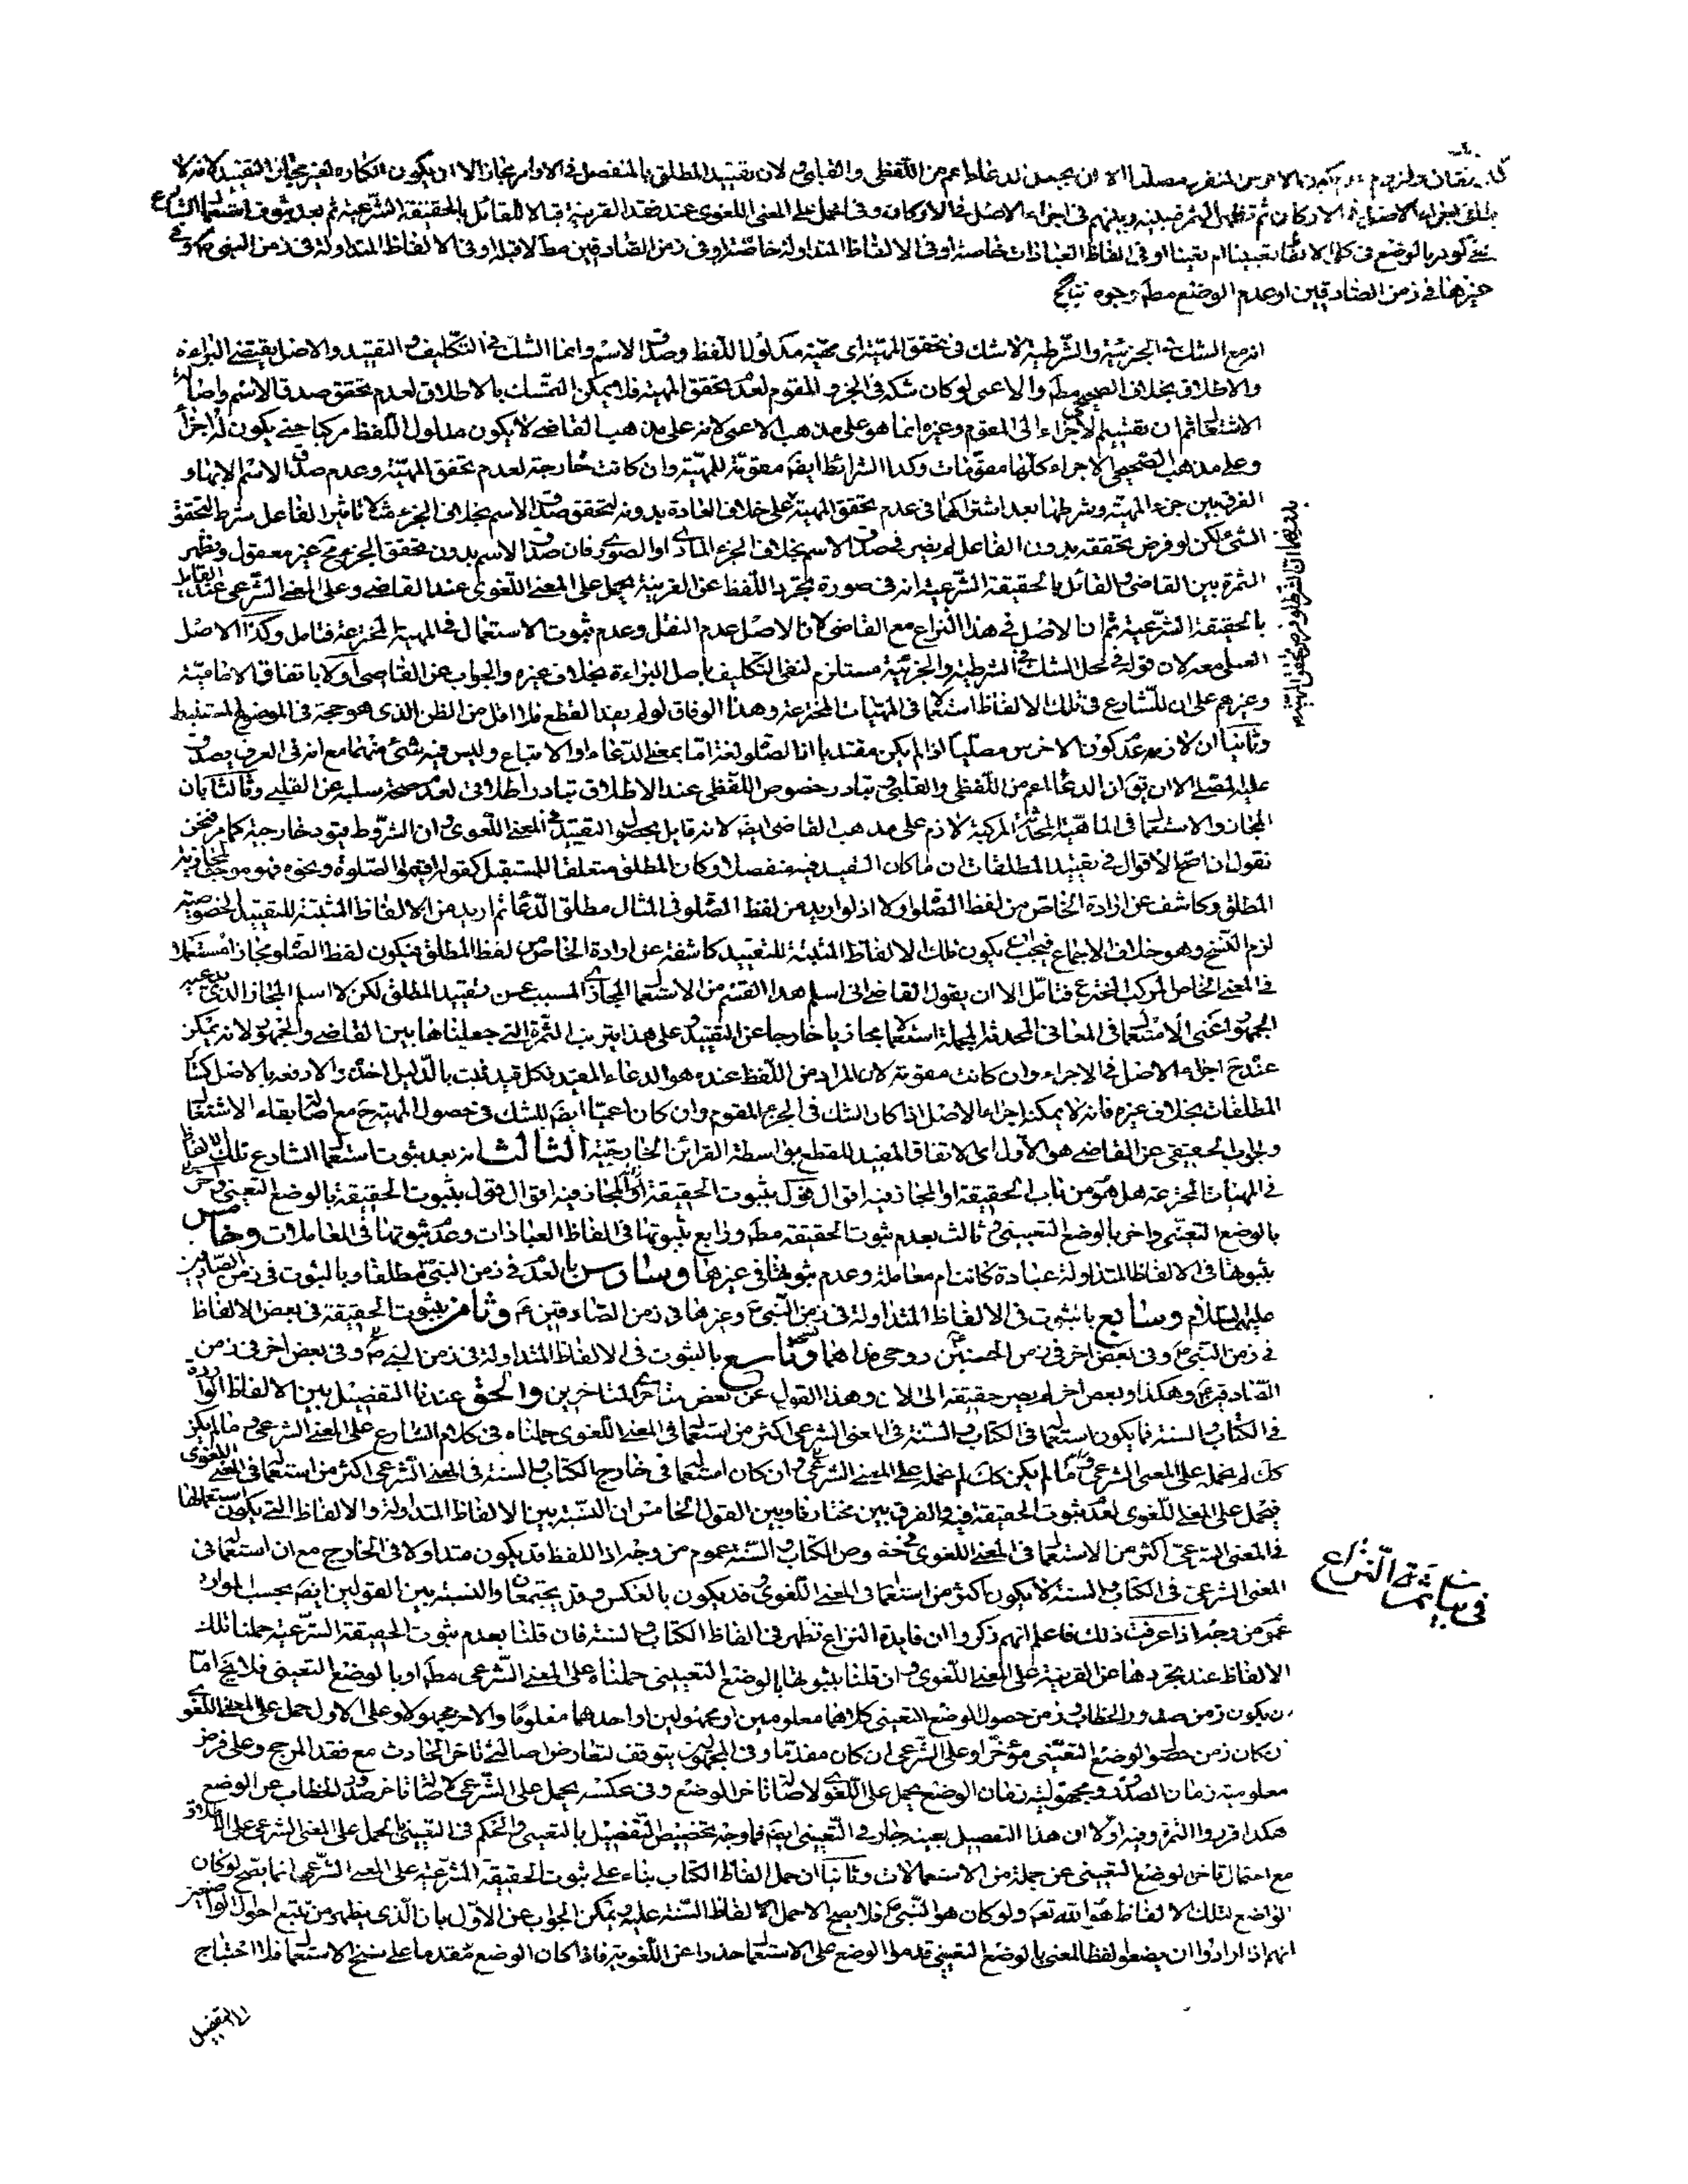 بالوضع في كلام الشارع تعيينا ام تعينا او في الفاظ العبادات خاصة او في الالفاظ المتداولة خاصة او في زمن الصادقين مط لا قبله او في الالفاظ المتداولة في زمن النبي
غيرها في زمن الصادقين او عدم الوضع مط وجوه
انه مع الشك في الجزئية والشرطية لا شك في تحقق المهية اى مهية مدلول اللفظ وصدق الاسم وانما الشك في التكليف والتقييد والاصل يقتضى البراءة
والاطلاق بخلاف الصحيحى مط والاعمى لو كان شكه في الجزء المقوم لعدم تحقق المهية فلا يمكن التمسك بالاطلاق لعدم تحقق صدق الاسم واصالة
الاشتغال ثم ان تقسيم الاجزاء الى المقوم وغيره انما هو على مذهب الاعمى لانه على مذهب القاضى لا يكون مدلول اللفظ مركبا حتى يكون له اجزأ
وعلى مذهب الصحيحى الاجزاء كلها مقومات وكذا الشرائط ايضا مقومة للمهية وان كانت خارجة لعدم تحقق المهية وعدم صدق الاسم الا بها و
الفرق بين جزء المهية وشرطها بعد اشتراكهما في عدم تحقق المهية على خلاف العادة بدونه لتحقق صدق الاسم بخلاف الجزء مثلا تاثير الفاعل شرط لتحقق
الشئ لكن لو فرض تحققه بدون الفاعل لم يضر في صدق الاسم بخلاف الجزء المادى او الصورى فان صدق الاسم بدون تحقق الجزء مح غير معقول وتظهر
الثمرة بين القاضى والقائل بالحقيقة الشرعية انه في صورة تجرد اللفظ عن القرينة يحمل على المعنى اللغوى عند القاضى وعلى المعنى الشرعى عند القائل
بالحقيقة الشرعية ثم ان الاصل في هذا النزاع مع القاضى لان الاصل عدم النقل وعدم ثبوت الاستعمال في المهية المخترعة فتامل وكذا الاصل
العملى معه لان قوله في محل الشك في الشرطية والجزئية مستلزم لنفى التكليف باصل البراءة بخلاف غيره والجواب عن القاضى اولا باتفاق الامامية
وغيرهم على ان للشارع في تلك الالفاظ استعمالا في المهيات المخترعة وهذا الوفاق لو لم يفد القطع فلا اقل من الظن الذى هو حجة في الموضوع المستنبط
وثانيا ان لازمه عدم كون الاخرس مصليا اذا لم يكن مقتديا اذ الصلوة لغة اما بمعنى الدعاء او الاتباع وليس فيه شئ منهما مع انه في العرف يصدق
عليه المصلى الا ان يق ان الدعاء اعم من اللفظى والقلبى وتبادر خصوص اللفظى عند الاطلاق تبادر اطلاقى لعدم صحة سلبه عن القلبى وثالثا بان
المجاز والاستعمال في الماهية المحدثة المركبة لازم على مذهب القاضى ايضا لانه قايل بحصول التقييد في المعنى اللغوى وان الشروط قيود خارجية كما مر فنحن
نقول ان اصح الاقوال في تقييد المطلقات ان ما كان التقييد فيه منفصلا وكان المطلق متعلقا للمستقبل كقوله اقيموا الصلوة ونحوه فهو موجب لمجازية
المطلق وكاشف عن ارادة الخاص من لفظ الصلوة والا اذ لو اريد من لفظ الصلوة في المثال مطلق الدعاء ثم اريد من الالفاظ المثبتة للتقييد لخصوصيته
لزم النسخ وهو خلاف الاجماع فيجب ان يكون تلك الالفاظ المثبتة للتقييد كاشفة عن ارادة الخاص من لفظ المطلق فيكون لفظ الصلوة مجازا مستعملا
في المعنى الخاص المركب المخترع فتامل الا ان يقول القاضى انى اسلم هذا القسم من الاستعمال المجازى المسبب عن تقييد المطلق لكن لا اسلم المجاز الذى يدعيه
الجمهور اعنى الاستعمال في المعانى المحدثة المجملة استعمالا مجازيا خارجا عن التقييد وعلى هذا يترتب الثمرة التى جعلناها بين القاضى والجمهور لانه يمكن
عنده ح اجراء الاصل في الاجزاء وان كانت مقومة لان المراد من اللفظ عنده هو الدعاء المقيد فكل قيد ثبت بالدليل اخذه والا دفعه بالاصل كسائر
المطلقات بخلاف غيره فانه لا يمكنه اجراء الاصل اذا كان الشك في الجزء المقوم وان كان اعميا ايضا للشك في حصول المهية ح مع اصالة بقاء الاشتغال
والجواب الحقيقى عن القاضى هو الاول اى الاتفاق المفيد للقطع بواسطة القرائن الخارجية الثالث انه بعد ثبوت استعمال الشارع تلك الالفاظ
في المهيات المخترعة هل هو من باب الحقيقة او المجاز فيه اقوال قول بثبوت الحقيقة بالوضع التعينى واخر
بالوضع التعينى واخر بالوضع التعيينى وثالث بعدم ثبوت الحقيقة مط ورابع بثبوتها في الفاظ العبادات وعدم ثبوتها في المعاملات وخامس
بثبوتها في الالفاظ المتداولة عبادة كانت ام معاملة وعدم ثبوتها في غيرها وسادس بالعدم في زمن النبى مطلقا وبالثبوت في زمن الصادقين
عليهما السلام وسابع بالثبوت في الالفاظ المتداولة في زمن النبى ص وغيرها في زمن الصادقين ع وثامن بثبوت الحقيقة في بعض الالفاظ
في زمن النبى ص وفى بعض اخر في زمن الحسنين روحى فداهما وتاسع بالثبوت في الالفاظ المتداولة في زمن النبى ص وفى بعض اخر في زمن
الصادقين ع وهكذا وبعض اخر لم يصر حقيقة الى الان وهذا القول عن بعض متاخرى المتاخرين والحق عندنا التفصيل بين الالفاظ الواردة
في الكتاب والسنة فما يكون استعماله في الكتاب والسنة في المعنى الشرعى اكثر من استعماله في المعنى اللغوى حملناه في كلام الشارع على المعنى الشرعى وما لم يكن
كك لم نحمل على المعنى الشرعى وما لم يكن كك لم نحمل على المعنى الشرعى وان كان استعماله في خارج الكتاب والسنة في المعنى الشرعى اكثر من استعماله في المعنى اللغوى
فيحمل على المعنى اللغوى لعدم ثبوت الحقيقة فيه والفرق بين مختارنا وبين القول الخامس ان النسبة بين الالفاظ المتداولة والالفاظ التى يكون استعمالها
في المعنى الشرعى اكثر من الاستعمال في المعنى اللغوى في خصوص الكتاب والسنة عموم من وجه اذ اللفظ قد يكون متداولا في الخارج مع ان استعماله في
المعنى الشرعى في الكتاب والسنة لا يكون اكثر من استعماله في المعنى اللغوى وقد يكون بالعكس وقد يجتمعان والنسبة بين القولين ايضا بحسب الموارد
عموم من وجه اذا عرفت ذلك فاعلم انهم ذكروا ان فايدة النزاع تظهر في الفاظ الكتاب والسنة فان قلنا بعدم ثبوت الحقيقة الشرعية حملنا تلك
الالفاظ عند تجردها عن القرينة على المعنى اللغوى وان قلنا بثبوتها بالوضع التعيينى حملناه على المعنى الشرعى مط او بالوضع التعينى فلا يخ اما
ان يكون زمن صدور الخطاب وزمن حصول الوضع التعينى كلاهما معلومين او مجهولين او احدهما معلوما والاخر مجهولا وعلى الاول حمل على المعنى اللغوى
ان كان زمن حصول الوضع التعينى مؤخرا وعلى الشرعى ان كان مقدما وفى المجهولين يتوقف لتعارض اصالتى تاخر الحادث مع فقد المرجح وعلى فرض
معلومية زمان الصدور ومجهولية زمان الوضع يحمل على اللغوى لاصالة تاخر الوضع وفى عكسه يحمل على الشرعى لاصالة تاخر صدور الخطاب عن الوضع
هكذا قرروا الثمرة وفيه اولا ان هذا التفصيل بعينه جار في التعيينى ايضا فما وجه تخصيص التفصيل بالتعينى والحكم في التعيينى بالحمل على المعنى الشرعى على الاطلاق
مع احتمال تاخر الوضع التعيينى عن جملة من الاستعمالات وثانيا ان حمل الفاظ الكتاب بناء على ثبوت الحقيقة الشرعية على المعنى الشرعى انما يصح لو كان
الواضع لتلك الالفاظ هو الله تعه ولو كان هو النبى ص فلا يصح الا حمل الفاظ السنة عليه ويمكن الجواب عن الاول بان الذى يظهر من تتبع احوال الواضعين
انهم اذا ارادوا ان يضعوا لفظا لمعنى بالوضع التعيينى قدموا الوضع على الاستعمال حذرا عن اللغوية فاذا كان الوضع مقدما على سنخ الاستعمال فلا احتياج
في بيان ثمرة النزاع
الى التفصيل